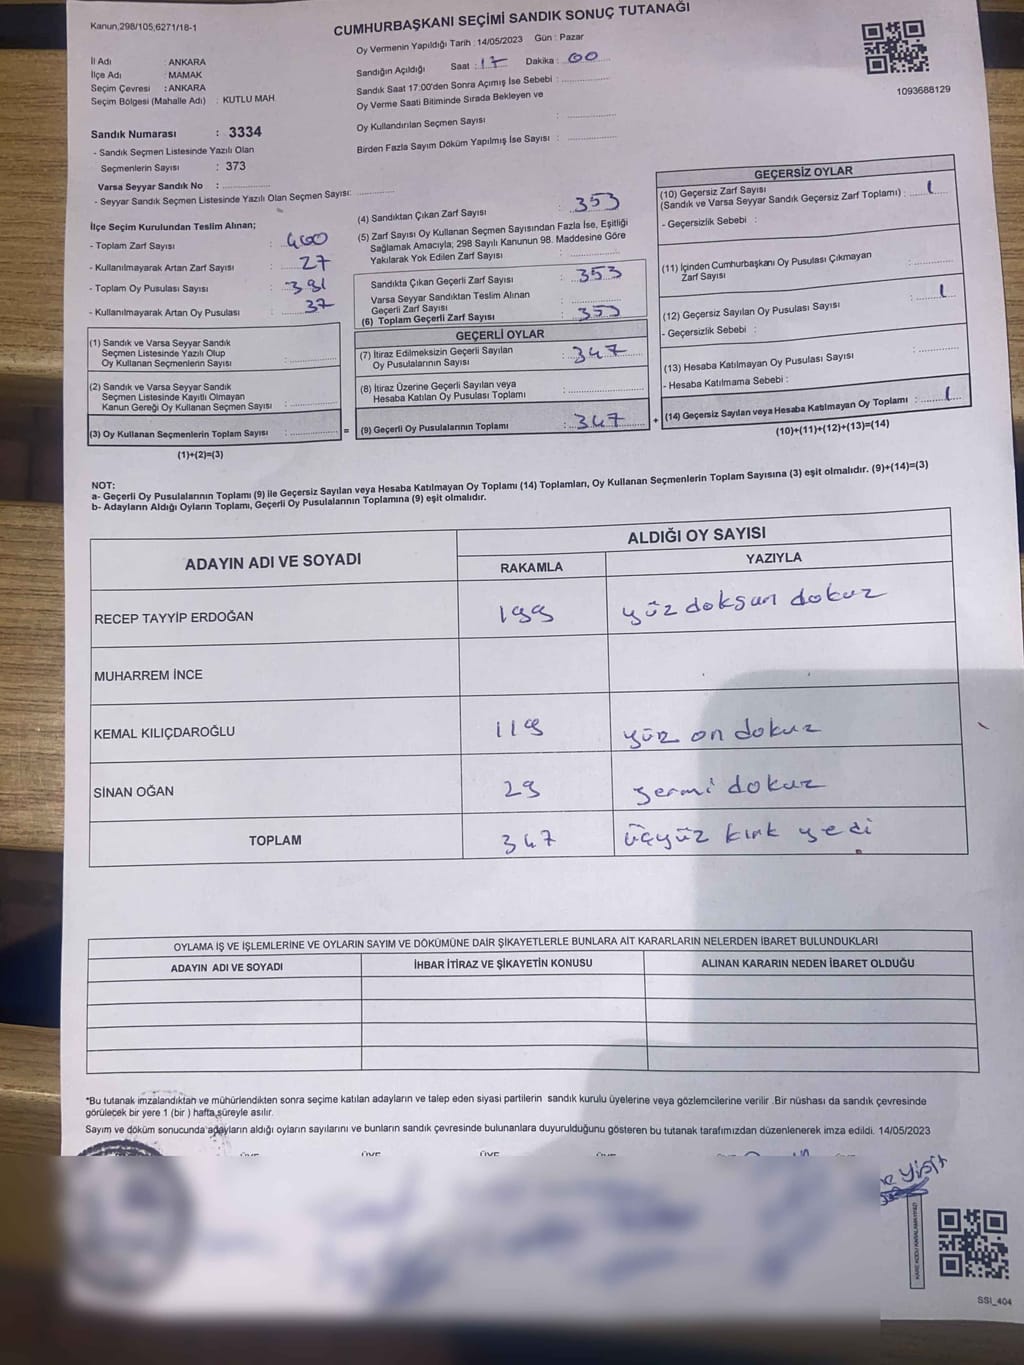 Kanun,298/105,6271/18-1
CUMHURBAŞKANI SEÇİMİ SANDIK SONUÇ TUTANAĞI
Oy Vermenin Yapıldığı Tarih : 14/05/2023 Gün : Pazar
İl Adı : ANKARA
İlçe Adı : MAMAK
Seçim Çevresi : ANKARA
Seçim Bölgesi (Mahalle Adı) : KUTLU MAH
Sandığın Açıldığı Saat : 17 Dakika : 00
Sandık Saat 17:00'den Sonra Açımış İse Sebebi :
Oy Verme Saati Bitiminde Sırada Bekleyen ve
Oy Kullandırılan Seçmen Sayısı :
Birden Fazla Sayım Döküm Yapılmış İse Sayısı :
1093688129
Sandık Numarası : 3334
- Sandık Seçmen Listesinde Yazılı Olan
Seçmenlerin Sayısı : 373
Varsa Seyyar Sandık No :
- Seyyar Sandık Seçmen Listesinde Yazılı Olan Seçmen Sayısı:
İlçe Seçim Kurulundan Teslim Alınan;
- Toplam Zarf Sayısı : 400
- Kullanılmayarak Artan Zarf Sayısı : 27
- Toplam Oy Pusulası Sayısı : 391
- Kullanılmayarak Artan Oy Pusulası : 37
(1) Sandık ve Varsa Seyyar Sandık
Seçmen Listesinde Yazılı Olup
Oy Kullanan Seçmenlerin Sayısı :
(2) Sandık ve Varsa Seyyar Sandık
Seçmen Listesinde Kayıtlı Olmayan
Kanun Gereği Oy Kullanan Seçmen Sayısı :
(3) Oy Kullanan Seçmenlerin Toplam Sayısı : =
(1)+(2)=(3)
(4) Sandıktan Çıkan Zarf Sayısı : 353
(5) Zarf Sayısı Oy Kullanan Seçmen Sayısından Fazla İse, Eşitliği
Sağlamak Amacıyla, 298 Sayılı Kanunun 98. Maddesine Göre
Yakılarak Yok Edilen Zarf Sayısı :
Sandıkta Çıkan Geçerli Zarf Sayısı : 353
Varsa Seyyar Sandıktan Teslim Alınan
Geçerli Zarf Sayısı :
(6) Toplam Geçerli Zarf Sayısı : 353
GEÇERLİ OYLAR
(7) İtiraz Edilmeksizin Geçerli Sayılan
Oy Pusulalarının Sayısı : 347
(8) İtiraz Üzerine Geçerli Sayılan veya
Hesaba Katılan Oy Pusulası Toplamı :
(9) Geçerli Oy Pusulalarının Toplamı : 347 +
GEÇERSİZ OYLAR
(10) Geçersiz Zarf Sayısı
(Sandık ve Varsa Seyyar Sandık Geçersiz Zarf Toplamı) : 1
- Geçersizlik Sebebi :
(11) İçinden Cumhurbaşkanı Oy Pusulası Çıkmayan
Zarf Sayısı :
(12) Geçersiz Sayılan Oy Pusulası Sayısı : 1
- Geçersizlik Sebebi :
(13) Hesaba Katılmayan Oy Pusulası Sayısı :
- Hesaba Katılmama Sebebi :
(14) Geçersiz Sayılan veya Hesaba Katılmayan Oy Toplamı : 1
(10)+(11)+(12)+(13)=(14)
NOT:
a- Geçerli Oy Pusulalarının Toplamı (9) ile Geçersiz Sayılan veya Hesaba Katılmayan Oy Toplamı (14) Toplamları, Oy Kullanan Seçmenlerin Toplam Sayısına (3) eşit olmalıdır. (9)+(14)=(3)
b- Adayların Aldığı Oyların Toplamı, Geçerli Oy Pusulalarının Toplamına (9) eşit olmalıdır.
ADAYIN ADI VE SOYADI ALDIĞI OY SAYISI
RAKAMLA YAZIYLA
RECEP TAYYİP ERDOĞAN 199 yüz doksan dokuz
MUHARREM İNCE
KEMAL KILIÇDAROĞLU 119 yüz on dokuz
SİNAN OĞAN 29 yermi dokuz
TOPLAM 347 üçyüz kırk yedi
OYLAMA İŞ VE İŞLEMLERİNE VE OYLARIN SAYIM VE DÖKÜMÜNE DAİR ŞİKAYETLERLE BUNLARA AİT KARARLARIN NELERDEN İBARET BULUNDUKLARI
ADAYIN ADI VE SOYADI İHBAR İTİRAZ VE ŞİKAYETİN KONUSU ALINAN KARARIN NEDEN İBARET OLDUĞU
*Bu tutanak imzalandıktan ve mühürlendikten sonra seçime katılan adayların ve talep eden siyasi partilerin sandık kurulu üyelerine veya gözlemcilerine verilir .Bir nüshası da sandık çevresinde
görülecek bir yere 1 (bir ) hafta süreyle asılır.
Sayım ve döküm sonucunda adayların aldığı oyların sayılarını ve bunların sandık çevresinde bulunanlara duyurulduğunu gösteren bu tutanak tarafımızdan düzenlenerek imza edildi. 14/05/2023
Yiğit
KARE KODU KARALAMAYINIZ!
SSI_404